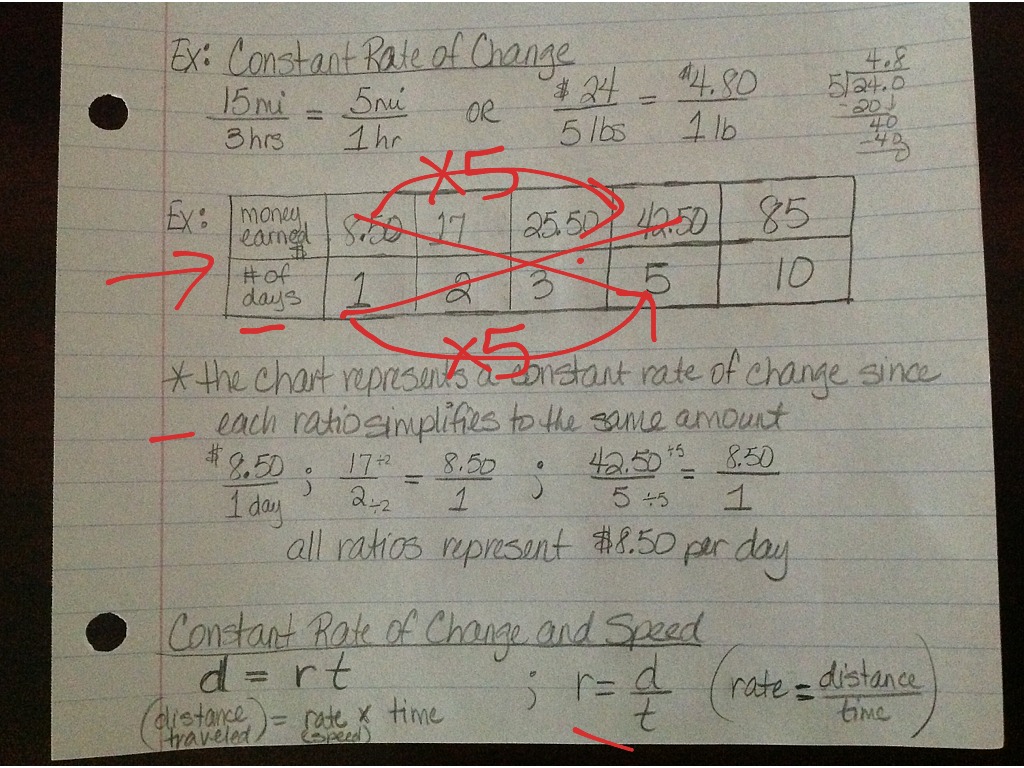 Ex: Constant Rate of Change
15mi/3hrs = 5mi/1hr OR $24/5lbs = $4.80/1lb
4.8
5)24.0
-20↓
40
-40
0
×5
Ex: money earned $ 8.50 17 25.50 42.50 85
# of days 1 2 3 5 10
×5
* the chart represents a constant rate of change since
each ratio simplifies to the same amount
$8.50/1 day ; 17÷2/2÷2 = 8.50/1 ; 42.50÷5/5÷5 = 8.50/1
all ratios represent $8.50 per day
Constant Rate of Change and Speed
d = r t ; r = d/t (rate = distance/time)
(distance traveled) = rate (speed) × time